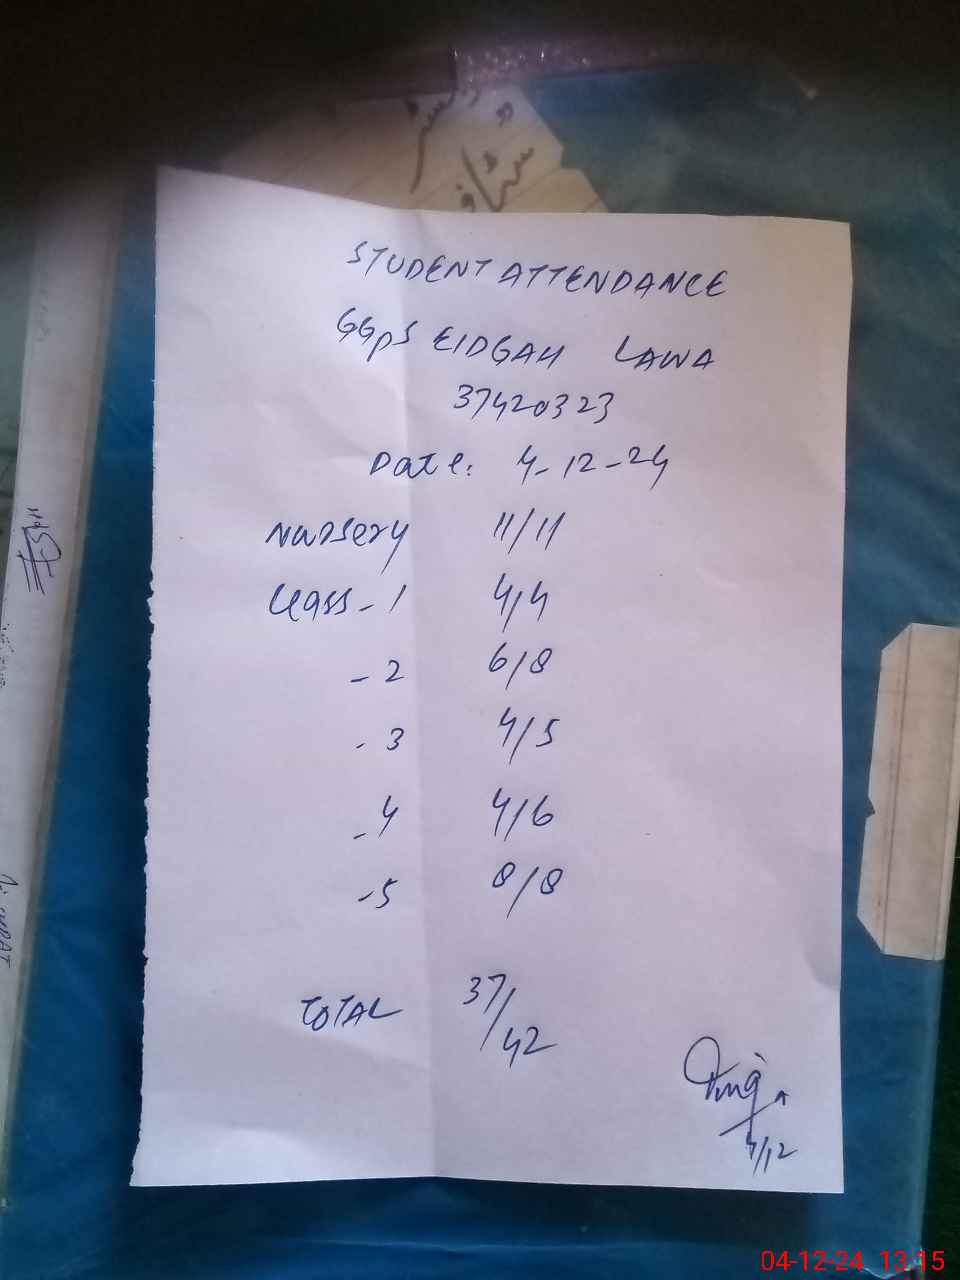 STUDENT ATTENDANCE
GGPS EIDGAH LAWA
37420323
Date: 4-12-24
Nursery 11/11
Class - 1 4/4
- 2 6/8
- 3 4/5
- 4 4/6
- 5 8/8
TOTAL 37/42
4/12
04-12-24 13:15